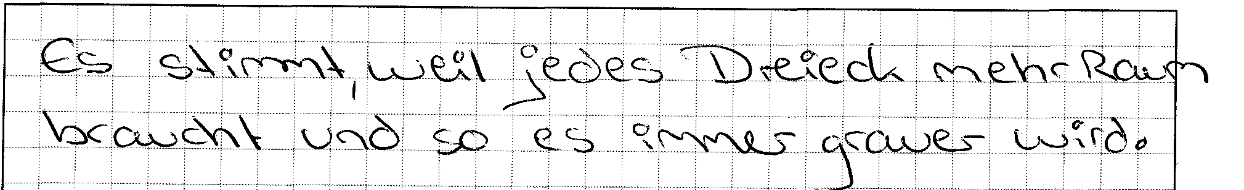 Es stimmt, weil jedes Dreieck mehr Raum
braucht und so es immer grauer wird.